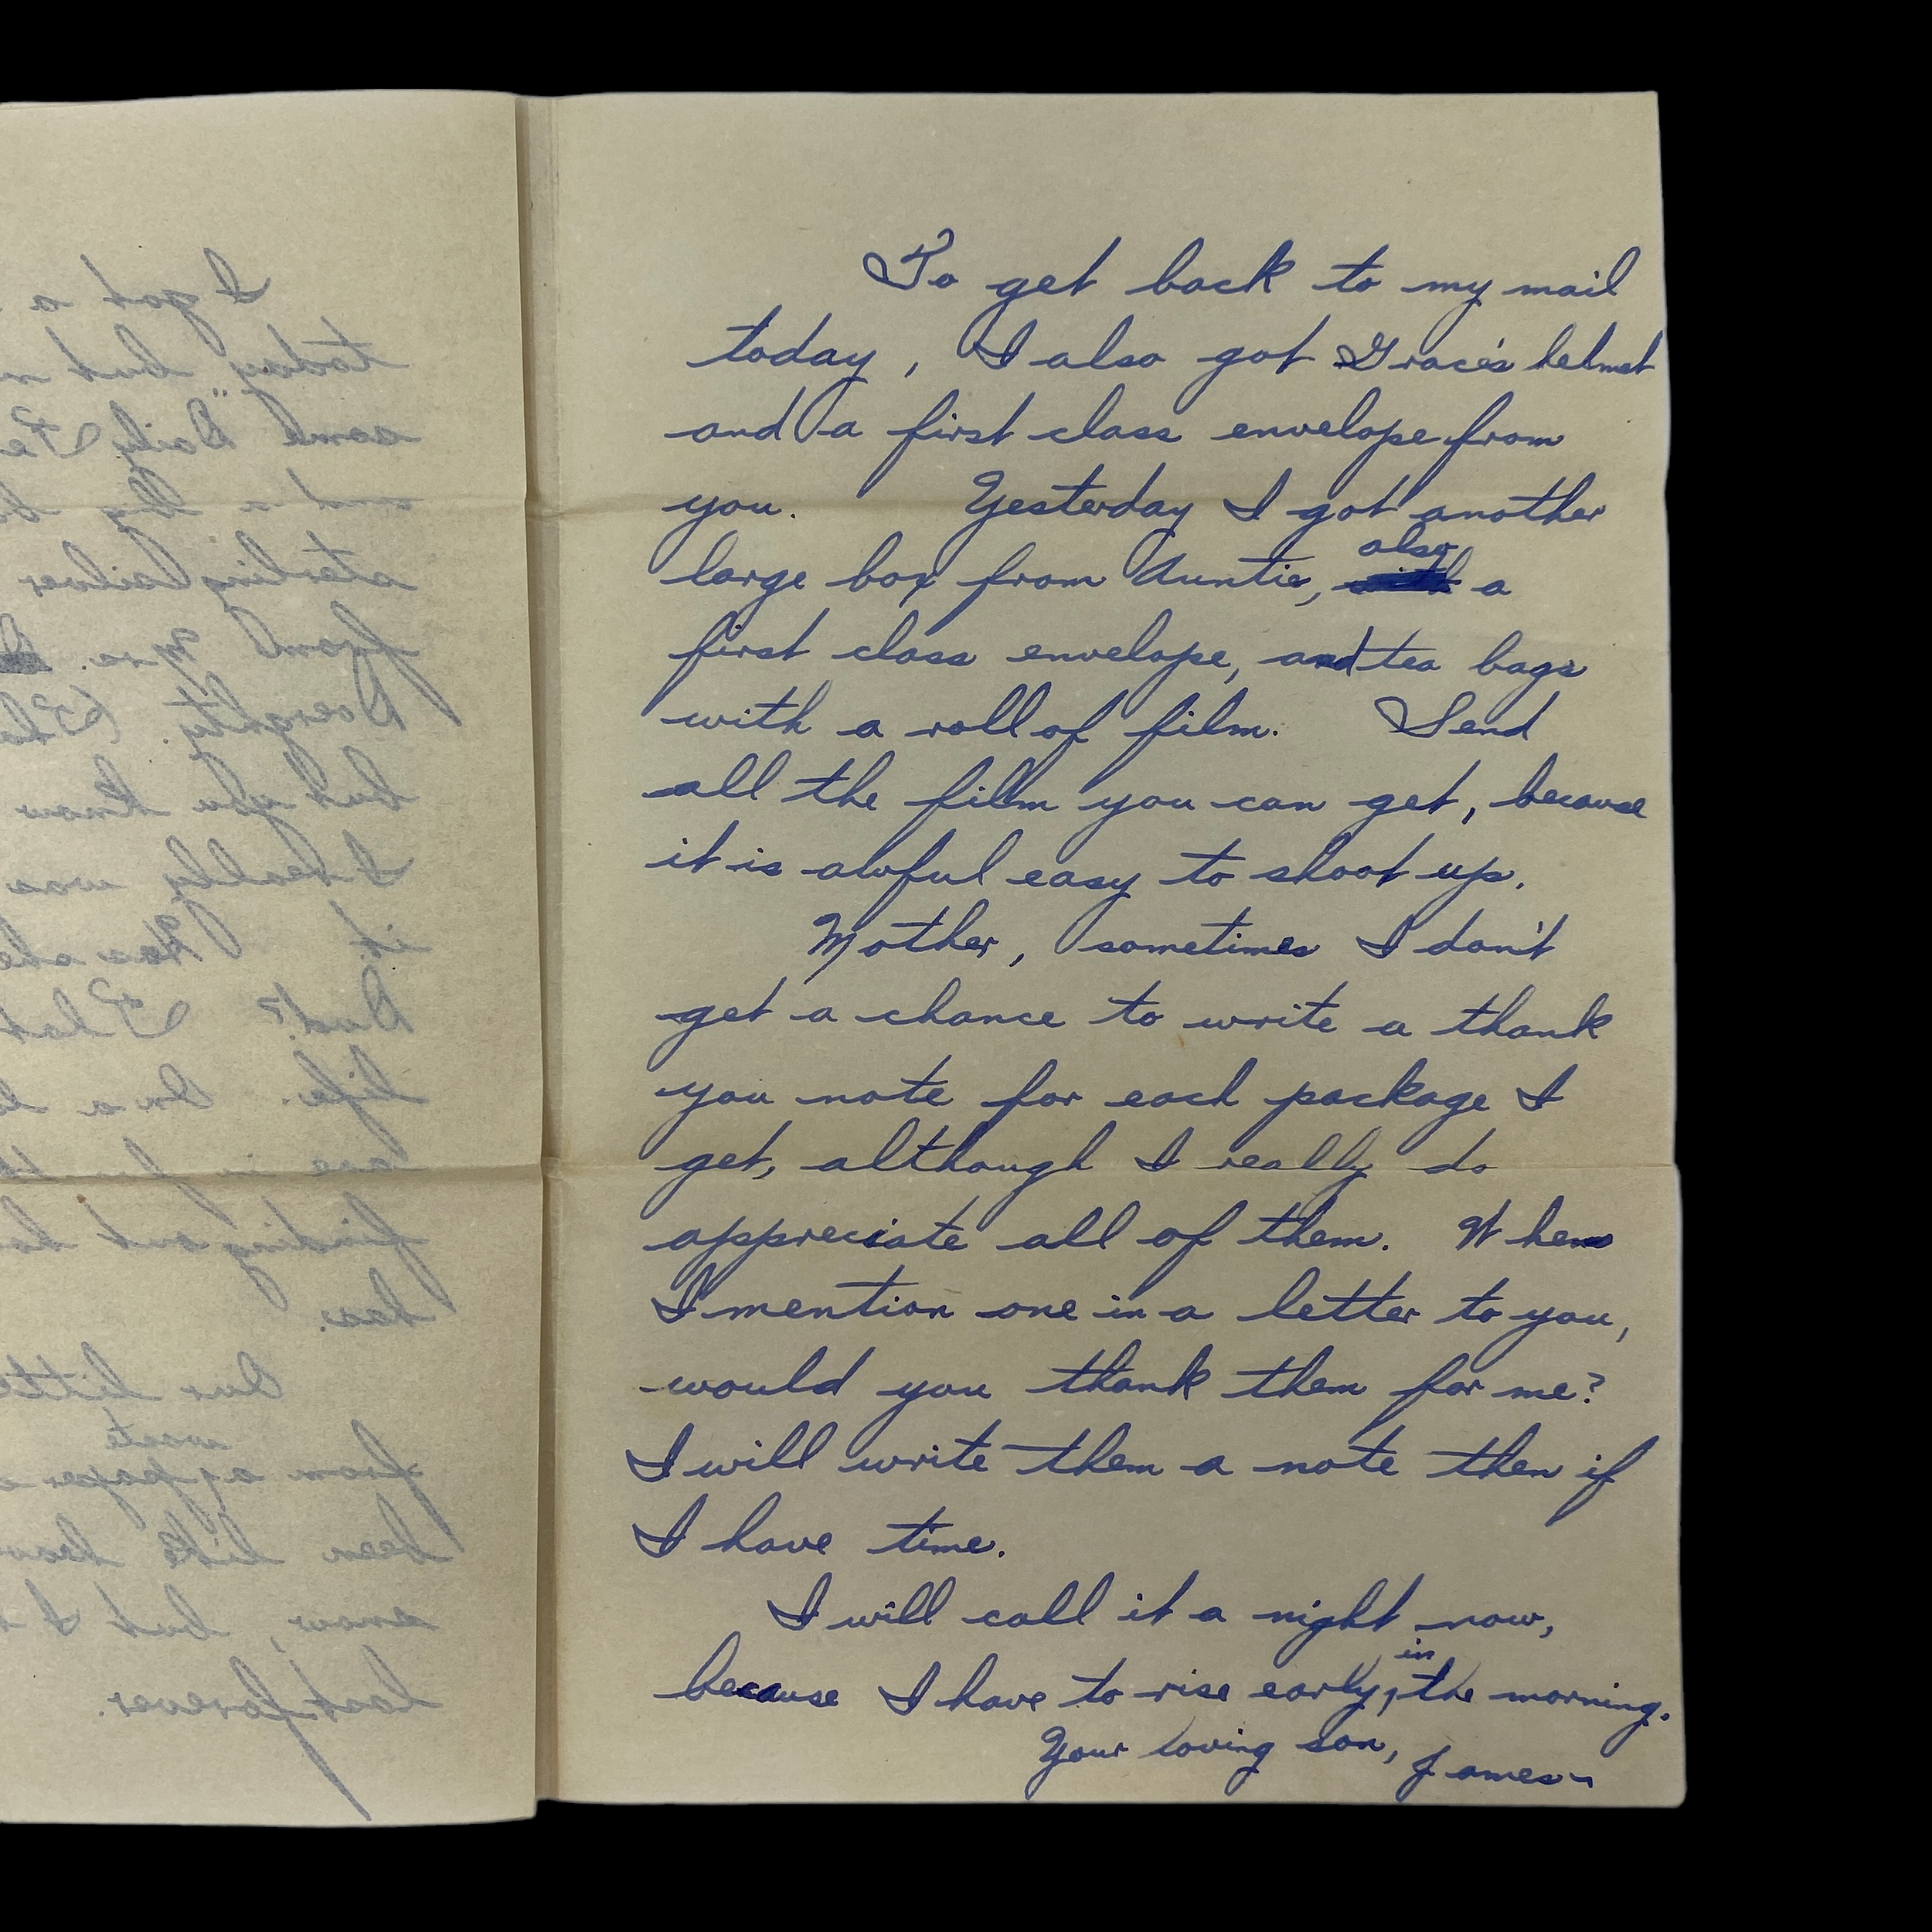 To get back to my mail
today, I also got Grace's helmet
and a first class envelope from
you. Yesterday I got another
also
large box from Auntie, with a
first class envelope, and tea bags
with a roll of film. Send
all the film you can get, because
it is awful easy to shoot up.
Mother, sometimes I don't
get a chance to write a thank
you note for each package I
get, although I really do
appreciate all of them. When
I mention one in a letter to you,
would you thank them for me?
I will write them a note then if
I have time.
I will call it a night now,
in
because I have to rise early, the morning.
Your loving son, James